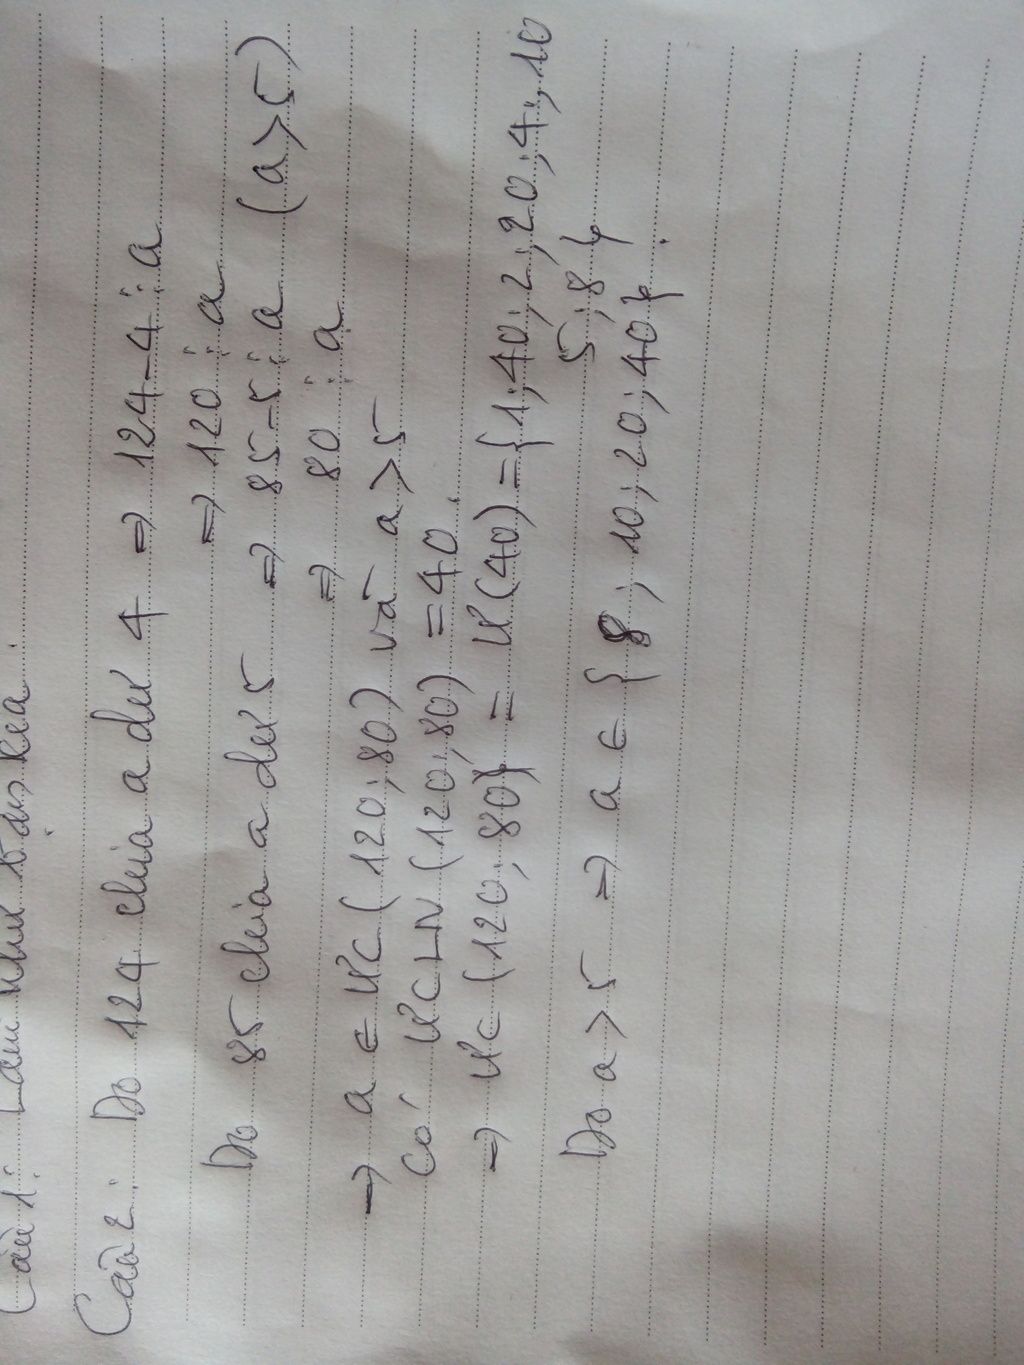 Câu 1: Làm như bạn kea.
Câu 2: Do 124 chia a dư 4 => 124-4 ⋮ a
=> 120 ⋮ a
Do 85 chia a dư 5 => 85-5 ⋮ a (a>5)
=> 80 ⋮ a
=> a ∈ ƯC (120; 80) và a > 5
Có ƯCLN (120; 80) = 40.
=> ƯC (120; 80) = Ư(40) = {1; 40; 2; 20; 4; 10
5; 8}
Do a > 5 => a ∈ {8; 10; 20; 40}.